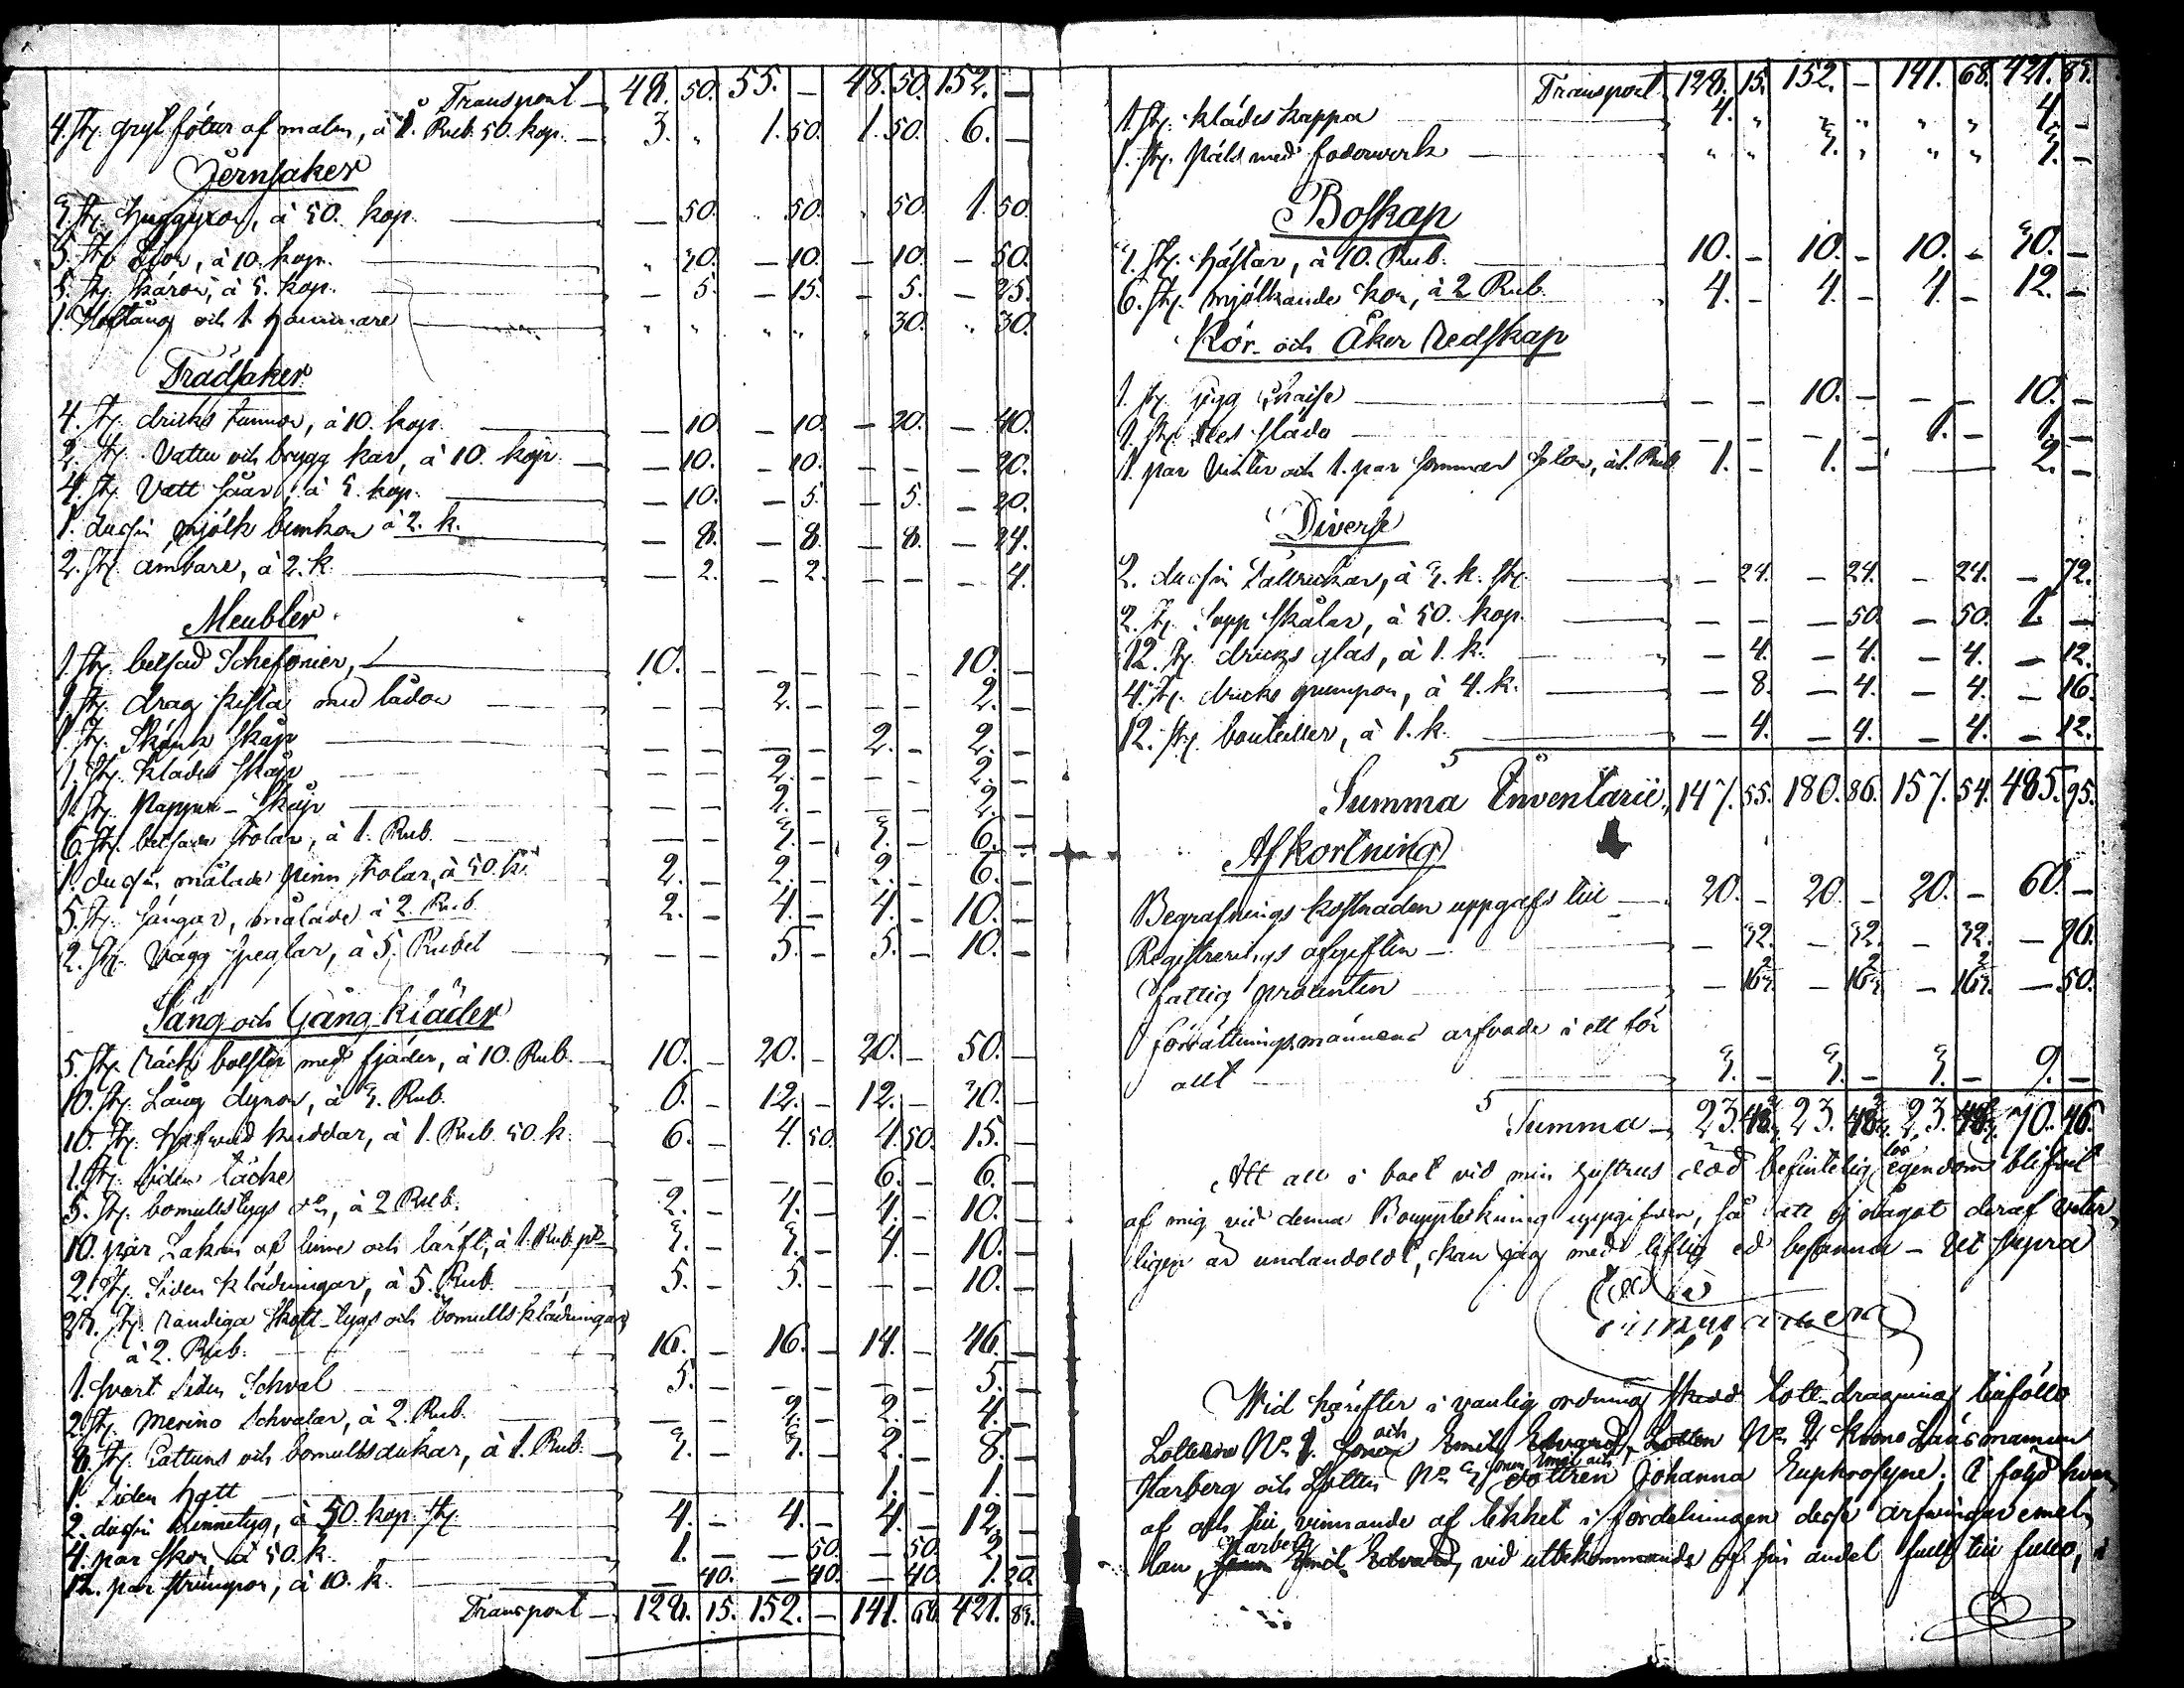 Transport 48. 50. 55. — 48. 50. 152. —
4. st. gryt fötter af malm, à 1. Rub. 50. kop. 3. " 1. 50. 1. 50. 6. —
Jernsaker
3. st. huggyxor, à 50. kop. — 50. 50. 50. 1. 50.
5. st. Liar, à 10. kop. " 30. — 10. — 10. — 50.
5. st. skäror, à 5. kop. — 5. — 15. — 5. — 25.
1. Hoftång och 1. hammare " " " " " 30. " 30.
Trädsaker
4. st. dricks tunnor, à 10. kop. — 10. — 10. — 20. — 40.
2. st. Vattu och brygg kar, à 10. kop. — 10. — 10. — — — 20.
4. st. Vatt såar, à 5. kop. — 10. — 5. — 5. — 20.
1. dussin mjölk bunkor à 2. k. — 8. — 8. — 8. — 24.
2. st. ämbare, à 2. k. — 2. — 2. — — — 4.
Meubler
1. st. betsad Schefonier, 10. — — — — — 10. —
1. st. drag kista med lådor — — 2. — — — 2. —
1. st. Skänk skåp — — — — 2. — 2. —
1. st. kläder skåp — — 2. — — — 2. —
1. st. Papper - skåp — — 2. — — — 2. —
6. st. betsade stolar, à 1. Rub. — — 3. — 3. — 6. —
1. dussin målade pinn stolar, à 50. k. 2. — 2. — 2. — 6. —
5. st. sängar, målade à 2. Rub. 2. — 4. — 4. — 10. —
2. st. Vägg speglar, à 5. Rubel — — 5. — 5. — 10. —
Säng- och Gång-kläder
5. st. bolster med fjäder, à 10. Rub. 10. — 20. — 20. — 50. —
10. st. Lång dynor, à 3. Rub. 6. — 12. — 12. — 30. —
10. st. hufvud kuddar, à 1. Rub. 50. k. 6. — 4. 50. 4. 50. 15. —
1. st. siden täcke — — — — 6. — 6. —
5. st. bomullstygs do, à 2 Rub. 2. — 4. — 4. — 10. —
10. par Lakan af linne och lärft, à 1. Rub. pr 3. — 3. — 4. — 10. —
2. st. Siden klädningar, à 5. Rub. 5. — 5. — — — 10. —
23. st. randiga skott-tygs och bomulls klädningar
à 2. Rub. 16. — 16. — 14. — 46. —
1. svart siden Schval 5. — — — — — 5. —
2. st. Merino Schvalar, à 2. Rub. — — 2. — 2. — 4. —
8. st. Cattuns och bomullsdukar, à 1. Rub. 3. — 3. — 2. — 8. —
1. siden hatt 1. — 1. —
2. dussin linnetyg, à 50. kop. st. 4. — 4. — 4. — 12. —
4. par skor, à 50. k. 1. — — 50. — 50. 2. —
12. par strumpor, à 10. k. — 40. — 40. — 40. 1. 20.
Transport — 128. 15. 152. — 141. 68. 421. 83.
Transport 128. 15. 152. — 141. 68. 421. 83.
1. st. klädes kappa 4. " " " " " 4. —
1. st. Päls med foderverk " " 3. " " " 3. —
Boskap
3. st. hästar, à 10. Rub. 10. — 10. — 10. — 30. —
6. st. mjölkande kor, à 2 Rub. 4. — 4. — 4. — 12. —
Kör- och Åker redskap
1. st. gigg schaise — — 10. — — — 10. —
1. st. släda — — — — 1. — 1. —
1. par vinter och 1. par sommar, à 1. Rub. 1. — 1. — — 2. —
Diverse
2. dussin Tallrickar, à 3. k. st. — 24. — 24. — 24. — 72.
2. st. Sopp skålar, à 50. kop. — — — 50. — 50. 1. —
12. st. dricks glas, à 1. k. — 4. — 4. — 4. — 12.
4. st. dricks, à 4. k. — 8. — 4. — 4. — 16.
12. st. bouteiller, à 1. k. — 4. — 4. — 4. — 12.
Summa Inventarii, 147. 55. 180. 86. 157. 54. 485. 95.
Afkortning
Begrafnings kostnaden uppgafs till — 20. — 20. — 20. — 60. —
Registrerings afgiften — — 32. — 32. — 32. — 96.
Fattig procenten — 16⅔. — 16⅔. — 16⅔. — 50.
Förrättningsmännens arfvode i ett för
allt 3. — 3. — 3. — 9. —
Summa — 23. 48⅔. 23. 48⅔. 23. 48⅔. 70. 46.
Att all i boet vid min hustrus död befintelig lös egendom blifvit
af mig vid denna Bouppteckning uppgifven, så att ej något deraf veter-
ligen är undandoldt, kan jag med liflig ed besanna - Ut supra
Wid härefter i vanlig ordning skedd lott-dragning tillföllo
Lotterne No 1. Sonen och Emil Edvard, Lotten No 2 Krono Länsmannen
Harberg och Lotten No 3 Sonen Emil och dottren Johanna Euphrosyne. I följd hvar
af och till vinnande af likhet i fördelningen desse arfvingar emel-
lan, Harberg sonen Emil Edvard, vid utbekommande af sin andel fullt till fullo,